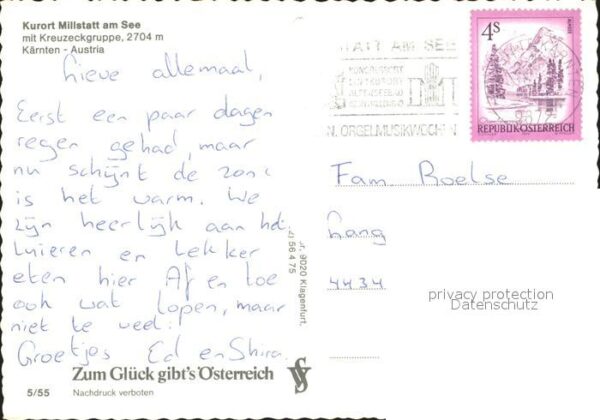 Kurort Millstatt am See
mit Kreuzeckgruppe, 2704 m
Kärnten - Austria
Lieve allemaal,
Eerst een paar dagen
regen gehad, maar
nu schijnt de zon en
is het warm. We
zijn heerlijk aan het
luieren en lekker
eten hier. Af en toe
ook wat lopen, maar
niet te veel!
Groetjes Ed en Shira.
Zum Glück gibt's Österreich
5/55
Nachdruck verboten
9020 Klagenfurt.
56 4 75
STATT AM SEE
KONGRESSORT
N. ORGELMUSIKWOCHEN
4S
ALMSEE
REPUBLIK ÖSTERREICH
Fam. Roelse
Lang
4434
privacy protection
Datenschutz